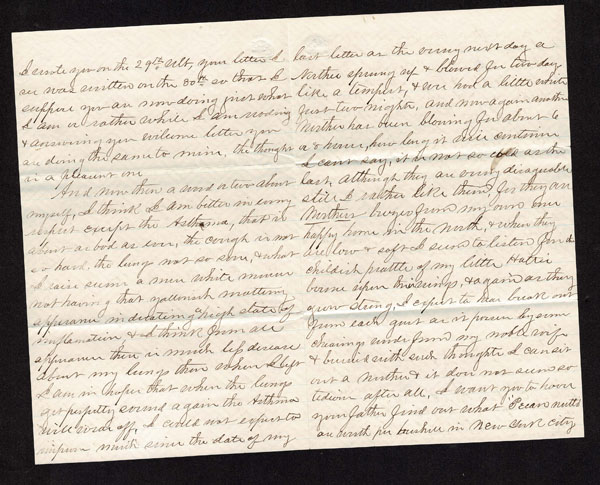 I wrote you on the 29th Ult, your letter I
see was written on the 30th so that I
suppose you are now doing just what
I am or rather while I am reading
& answering your welcome letter you
are doing the same to mine, the thought
is a pleasant one
And now then a word or two about
myself, I think I am better in every
respect except the Asthma, that is
about as bad as ever, the cough is not
so hard, the lungs not so sore, & what
I raise seems a mere white mucus
not having that yellowish mattery
appearance indicating a high state of
inflamation, & I think from all
appearance there is much less disease
about my lungs than when I left
I am in hopes that when the lungs
get perfectly sound again the Asthma
will wear off, I could not expect to
improve much since the date of my
last letter as the very next day a
Norther sprung up & blowed for two days
like a tempest, & we had a little white
frost two nights, and now again another
Norther has been blowing for about 6
or 8 hours, how long it will continue
I can't say, it is not so cold as the
last, although they are very disagreeable
still I rather like them, for they are
Norther breezes from my own once
happy home in the north, & when they
are low & soft I seem to listen for the
childish prattle of my little Hattie
borne upon their wings, & again as they
grow strong, I expect to hear break out
from each gust as it passes by some
cheering words from my noble wife
& buried with such thoughts I can sit
out a Norther & it does not seem so
tedious after all, I want you to have
your father find out what Pecan nutts
are worth per bushell in New York City